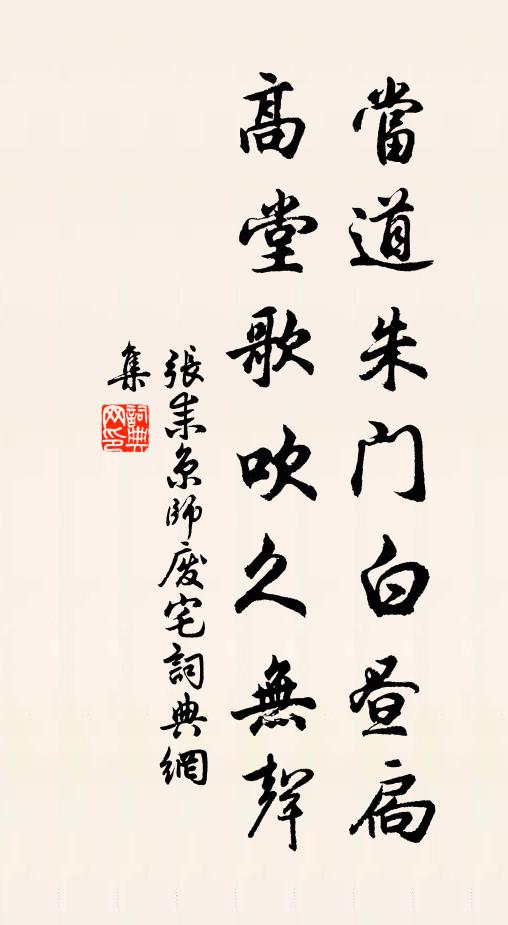 當道朱門白晝扃
高堂歌吹久無聲
張耒京師廢宅詞典網
集
詞典
网印